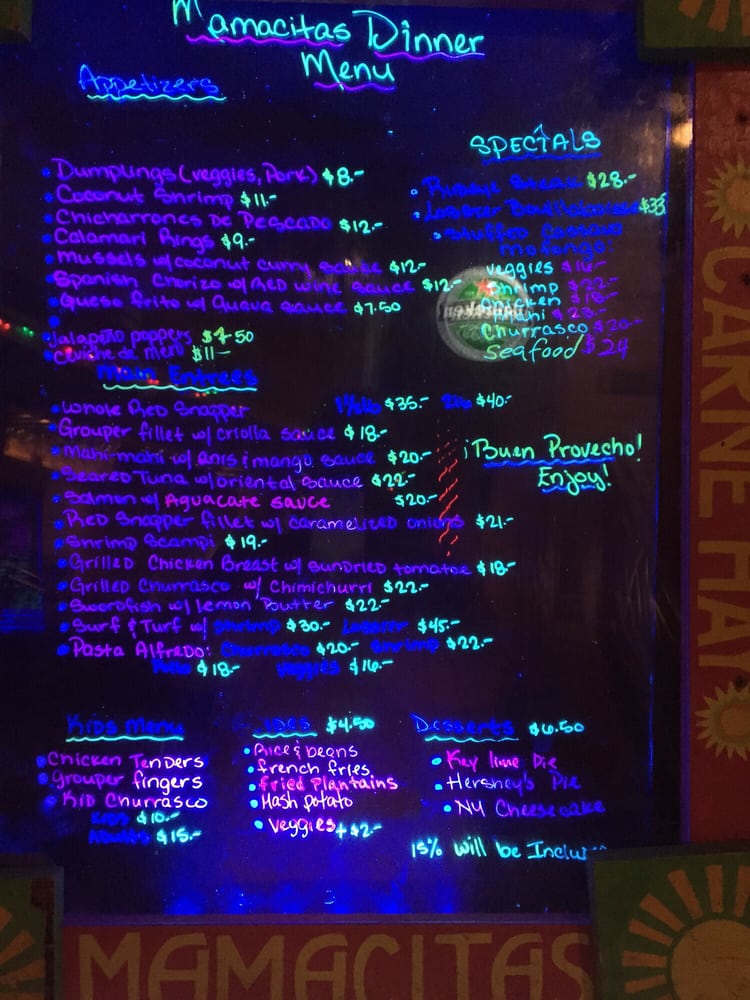 Mamacitas Dinner
Menu
Appetizers
• Dumplings (veggies, Pork) $8.-
• Coconut Shrimp $11.-
• Chicharrones De Pescado $12.-
• Calamari Rings $9.-
• Mussels w/coconut curry sauce $12.-
• Spanish Chorizo w/Red wine sauce $12.-
• Queso frito w/ Guava sauce $7.50
• Jalapeño poppers $7.50
• Ceviche de Mero $11-
Main Entrees
• Whole Red Snapper 1½lb $35.- 2lb $40.-
• Grouper fillet w/ criolla sauce $18.-
• Mahi-mahi w/ anis & mango sauce $20.-
• Seared Tuna w/oriental sauce $22.-
• Salmon w/ Aguacate sauce $20.-
• Red Snapper fillet w/ caramelized onions $21.-
• Shrimp Scampi $19.-
• Grilled Chicken Breast w/ sundried tomatoe $18-
• Grilled Churrasco w/ Chimichurri $22.-
• Swordfish w/ lemon Butter $22.-
• Surf & Turf w/ Shrimp $30.- Lobster $45.-
• Pasta Alfredo: Churrasco $20.- Shrimp $22.-
Pollo $18.- Veggies $16.-
SPECIALS
• Ribeye Steak $28.-
• Lobster $33
• Stuffed Cassava
mofongo:
veggies $16.-
Shrimp $22.-
chicken $18.-
mahi $23.-
Churrasco $20.-
Seafood $24
¡Buen Provecho!
Enjoy!
Kids Menu
• Chicken Tenders
• Grouper fingers
• Kid Churrasco
Kids $10.-
Adults $15.-
$4.50
• Rice & beans
• french fries
• fried Plantains
• Mash potato
• Veggies + $2.-
Desserts $6.50
• Key lime Pie
• Hershey's Pie
• NY Cheesecake
15% will be
CARNE HAY
MAMACITAS